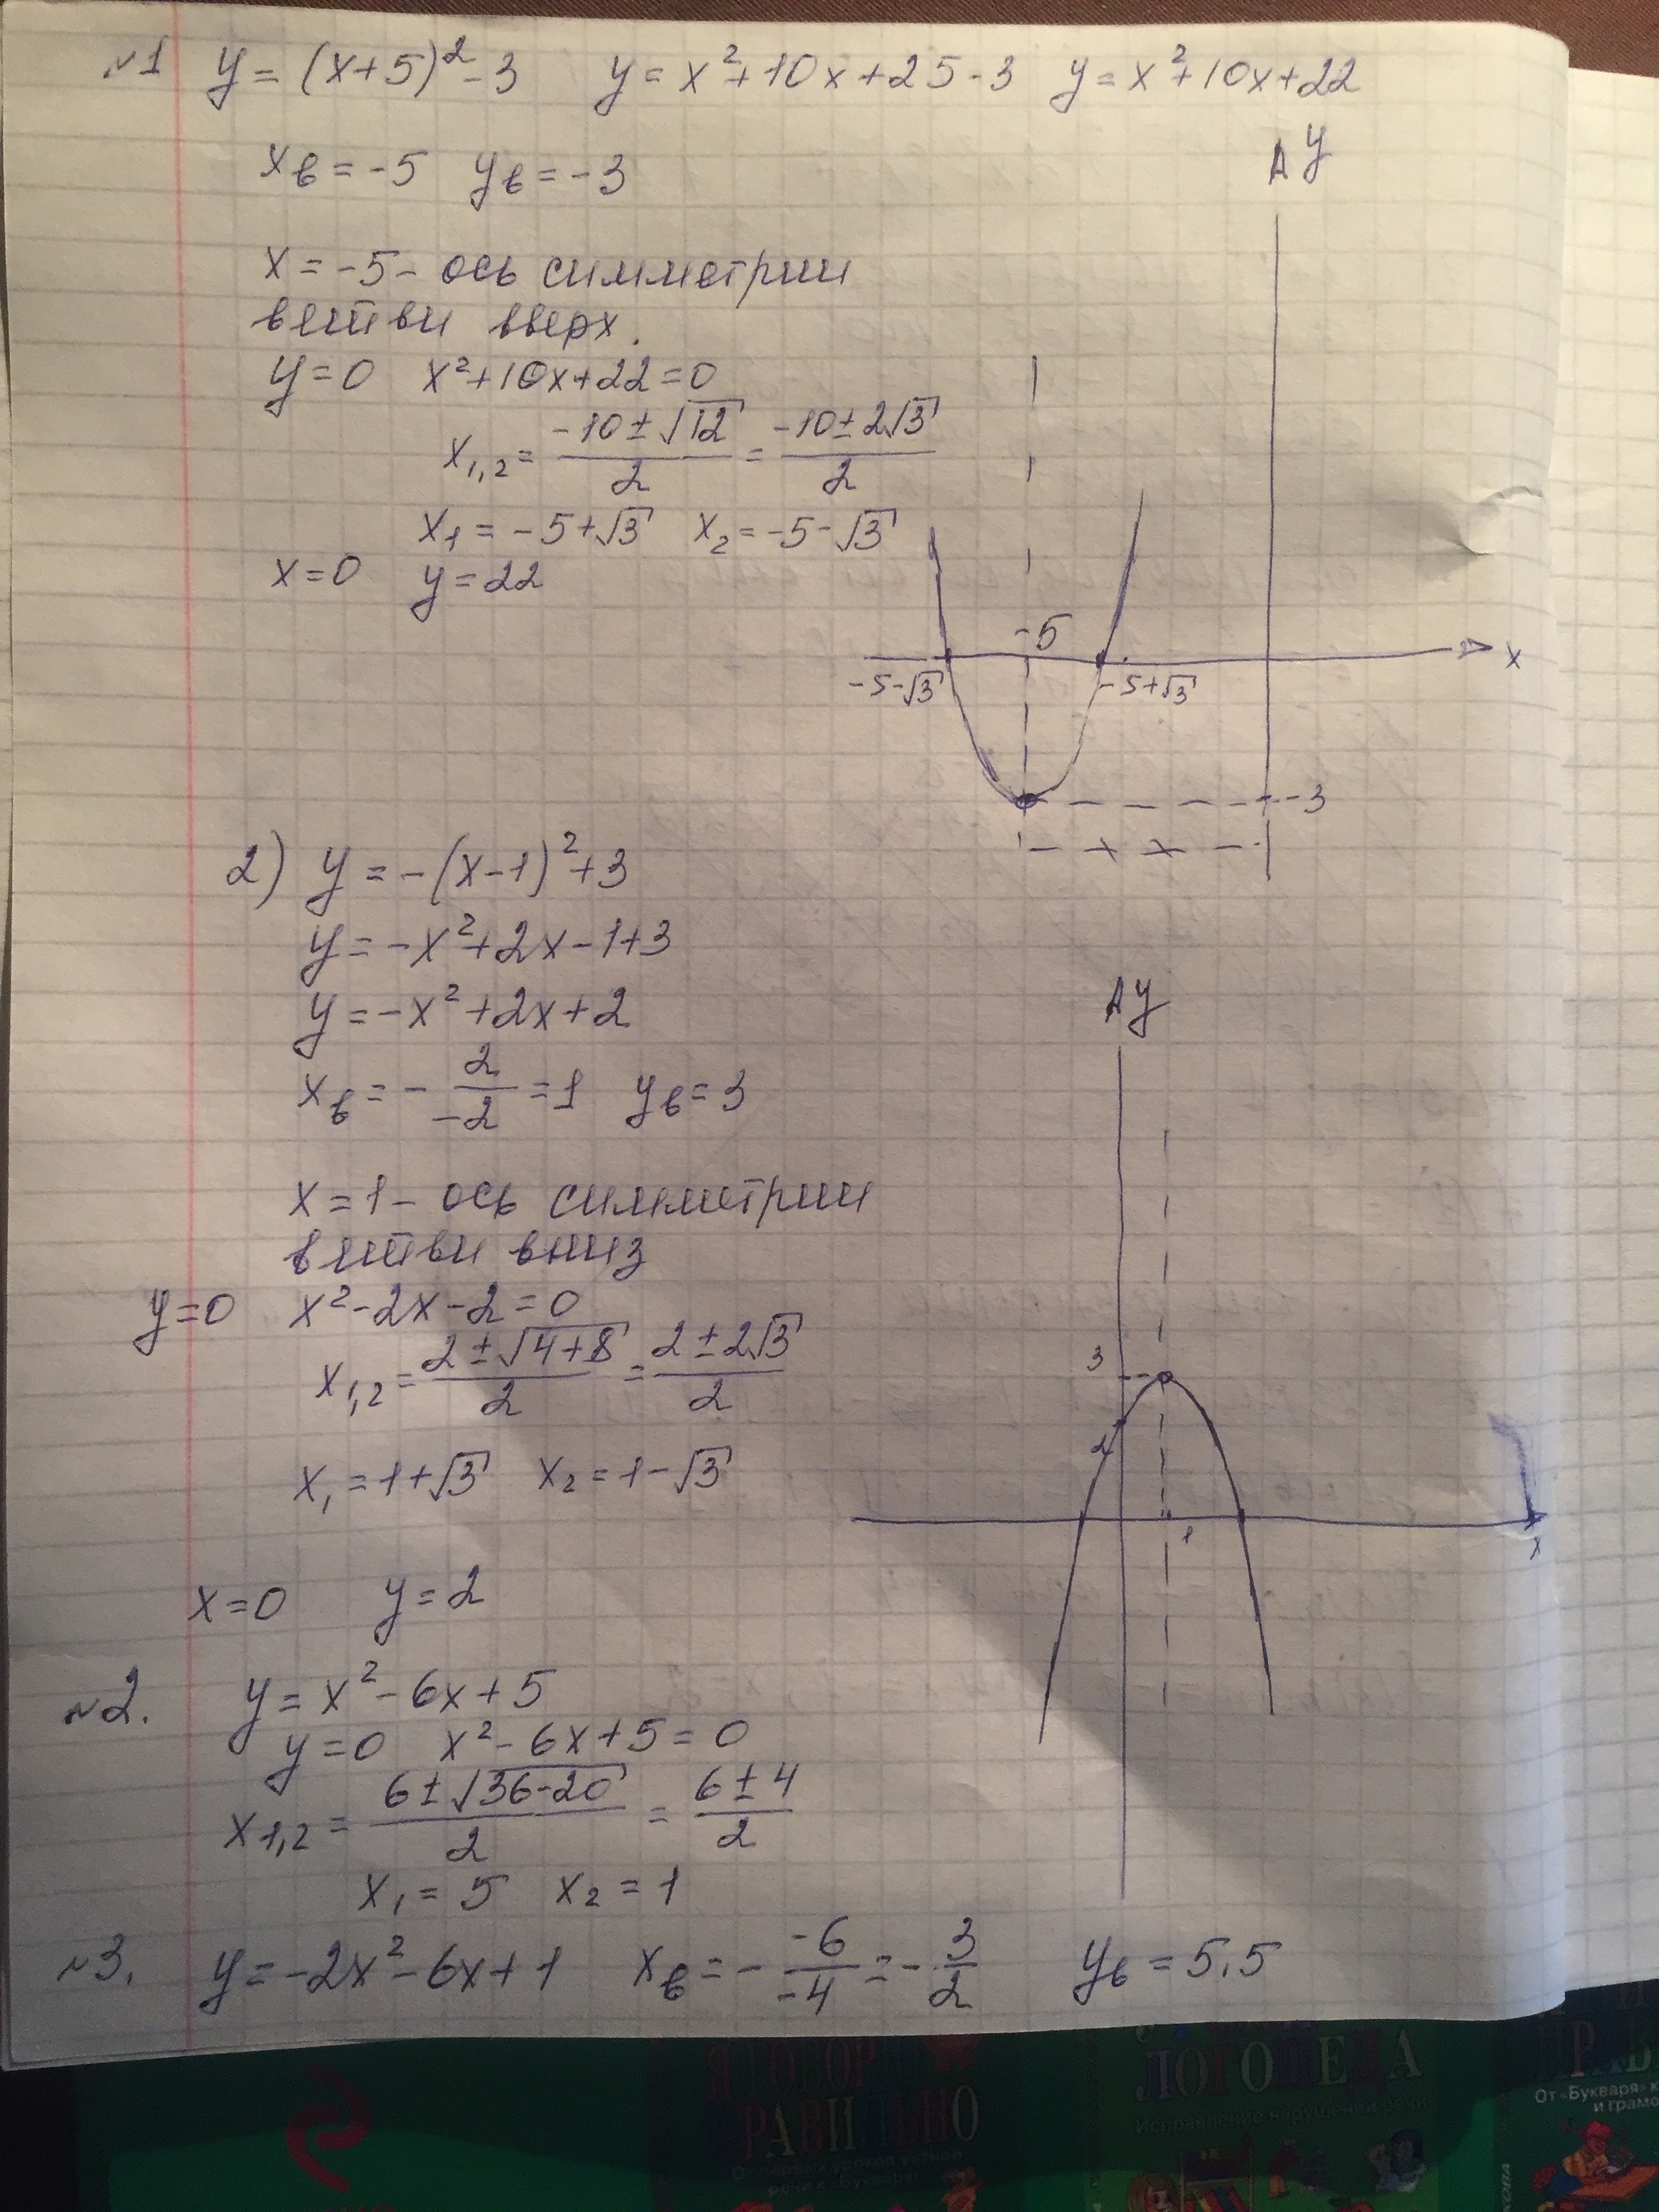 №1 y = (x+5)² - 3 y = x² + 10x + 25 - 3 y = x² + 10x + 22
xв = -5 yв = -3
x = -5 - ось симметрии
ветви вверх.
y = 0 x² + 10x + 22 = 0
x₁,₂ = (-10 ± √12)/2 = (-10 ± 2√3)/2
x₁ = -5 + √3 x₂ = -5 - √3
x = 0 y = 22
y
-5
x
-5-√3
-5+√3
-3
2) y = -(x-1)² + 3
y = -x² + 2x - 1 + 3
y = -x² + 2x + 2
xв = - 2/-2 = 1 yв = 3
x = 1 - ось симметрии
ветви вниз
y = 0 x² - 2x - 2 = 0
x₁,₂ = (2 ± √4+8)/2 = (2 ± 2√3)/2
x₁ = 1 + √3 x₂ = 1 - √3
x = 0 y = 2
y
3
2
1
x
№2. y = x² - 6x + 5
y = 0 x² - 6x + 5 = 0
x₁,₂ = (6 ± √36-20)/2 = (6 ± 4)/2
x₁ = 5 x₂ = 1
№3. y = -2x² - 6x + 1 xв = - -6/-4 = - 3/2 yв = 5,5
Я ГОВОРЮ
ПРАВИЛЬНО
От первых уроков устной
речи к «Букварю»
ЛОГОПЕДА
Исправление нарушений речи
От «Букваря» к
и грамо